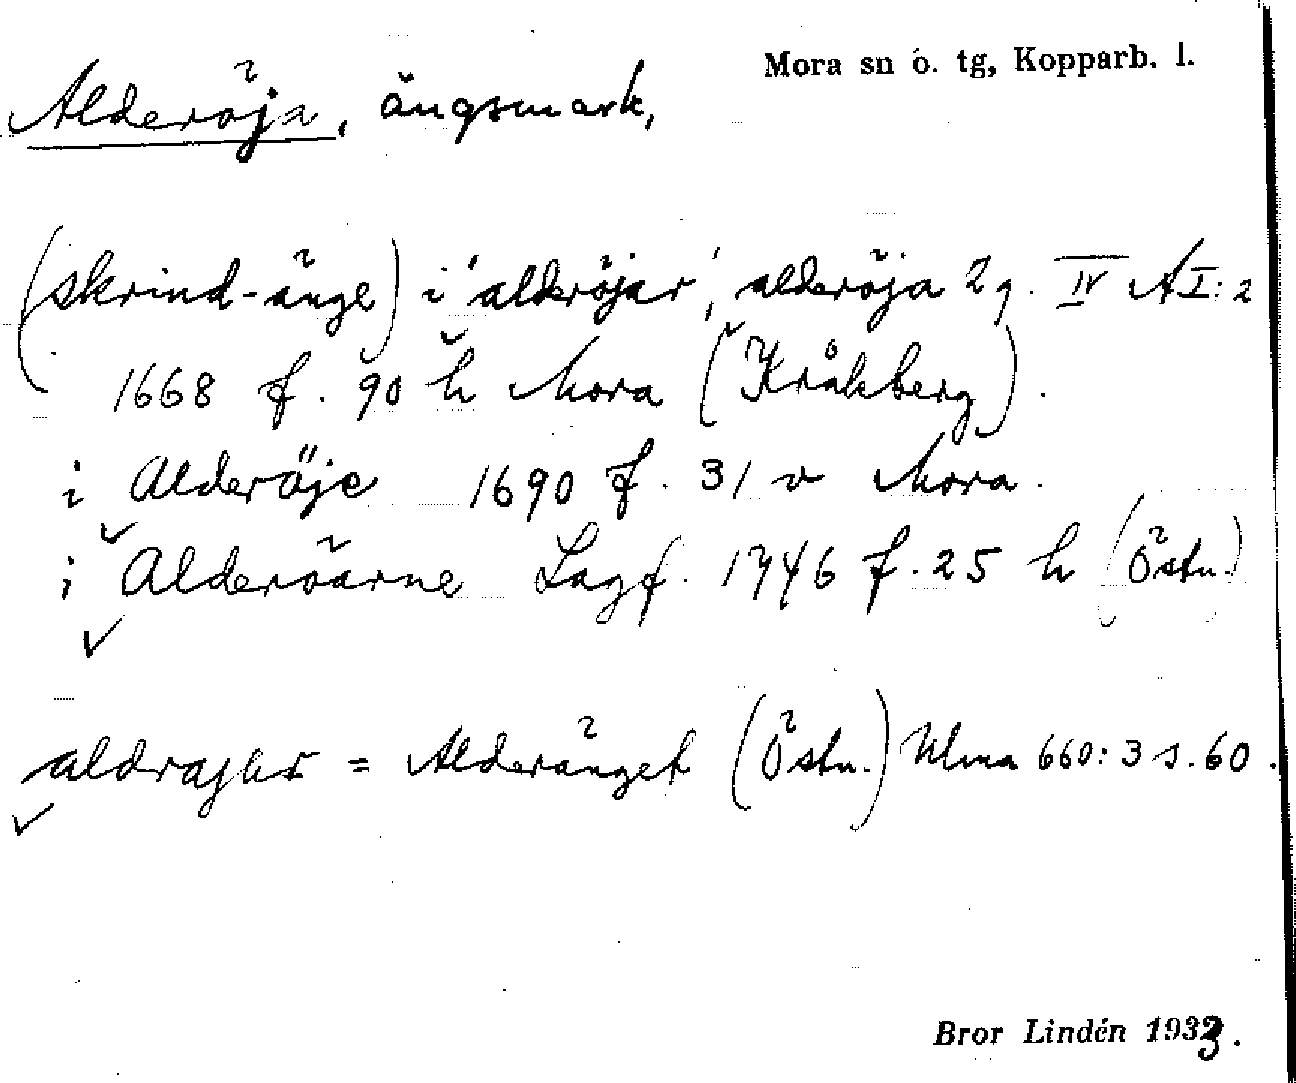 Mora sn o. tg, Kopparb. l.
Alderöja, ängsmark,
(skrind-änge) i 'alderöjar', alderöja 2 g. IV A I:2
1668 f. 90 h Mora (Kråkberg).
i Alderöje 1690 f. 31 v Mora.
i Alderöarne Lagf. 1746 f. 25 h (Östn.)
= Alderänget (Östn.) Ulma 660:3 s. 60.
Bror Lindén 1933.